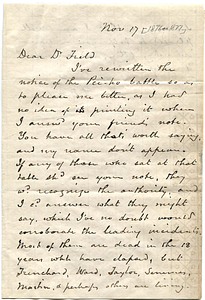 Nov 17
Dear Dr Field
I've rewritten the
notice of the Peirho battle so as
to please me better, as I had
no idea of its printing it when
I answd your friend's note.
You have all that's worth saying,
and my name don't appear.
If any of those who sat at that
table shd see your note, they
wd recognize the authority, and
I cd answer what they might
say, which I've no doubt would
corroborate the leading incidents.
Most of them are dead in the 18
years wh have elapsed, but
Trenchard, Ward, Taylor,
Martin, & perhaps others are living.